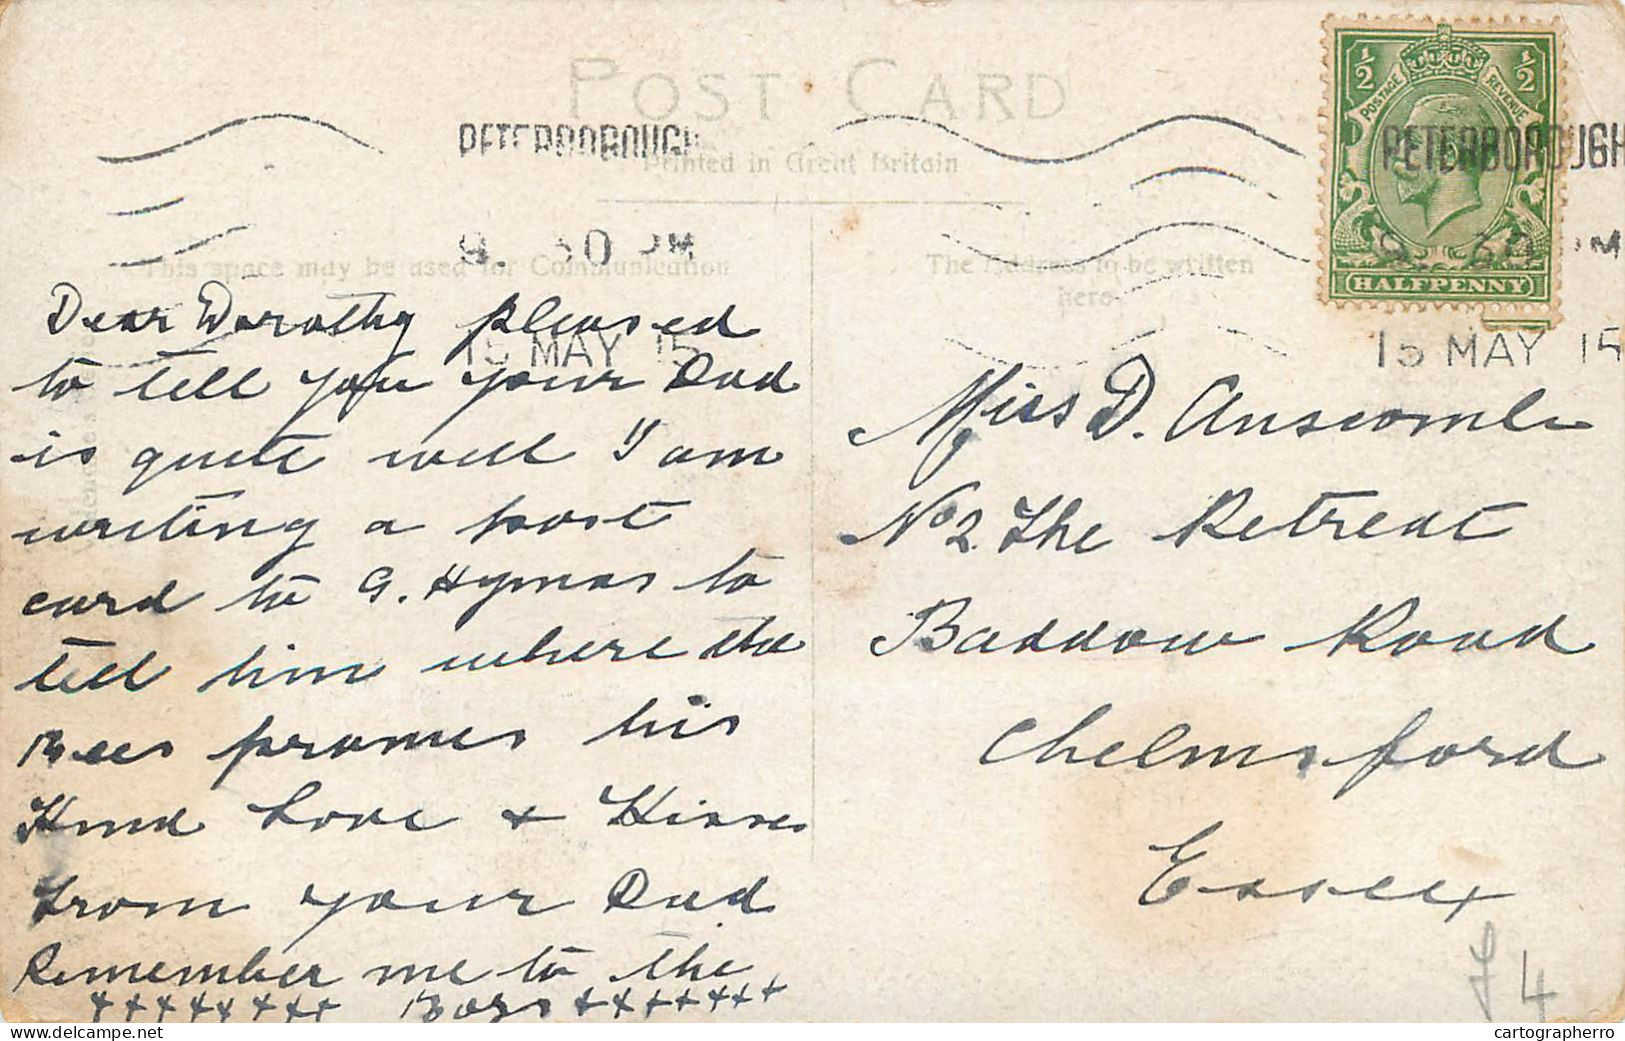 POST CARD
Printed in Great Britain
PETERBOROUGH
9. 30 PM
15 MAY 15
PETERBOROUGH
9. 30 PM
15 MAY 15
½ ½
POSTAGE REVENUE
HALFPENNY
This space may be used for Communication
The Address to be written
here
Dear Dorothy pleased
to tell you your Dad
is quite well I am
writing a post
card to G. Hymas to
tell him where the
Bees frames his
Kind Love & Kisses
from your Dad
Remember me to the
++++++++ Boys +++++++
Miss D. Anscombe
No 2 The Retreat
Baddow Road
Chelmsford
Essex
4
cartographerro